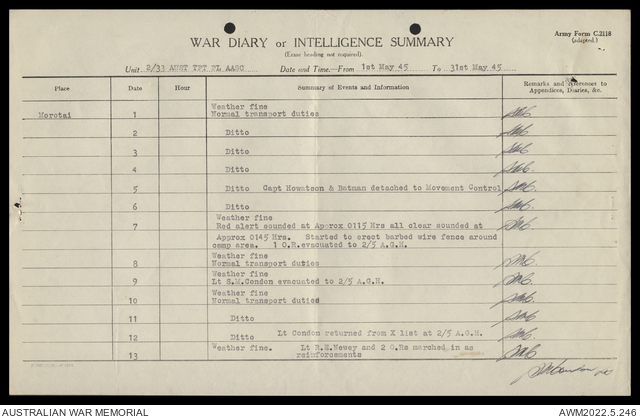 Army Form C.2118
(adapted.)
WAR DIARY or INTELLIGENCE SUMMARY
(Erase heading not required).
Unit 2/33 AUST TPT PL AASC Date and Time.—From 1st May 45 To 31st May 45
Place Date Hour Summary of Events and Information Remarks and References to Appendices, Diaries, &c.
Morotai 1 Weather fine
Normal transport duties
2 Ditto
3 Ditto
4 Ditto
5 Ditto Capt Howatson & Batman detached to Movement Control
6 Ditto
7 Weather fine
Red alert sounded at Approx 0115 Hrs all clear sounded at
Approx 0145 Hrs. Started to erect barbed wire fence around
camp area. 1 O.R. evacuated to 2/5 A.G.H.
8 Weather fine
Normal transport duties
9 Weather fine
Lt S.M.Condon evacuated to 2/5 A.G.H.
10 Weather fine
Normal transport duties
11 Ditto
12 Ditto Lt Condon returned from X list at 2/5 A.G.H.
13 Weather fine. Lt R.E.Newey and 2 O.Rs marched in as
reinforcements
AUSTRALIAN WAR MEMORIAL AWM2022.5.246